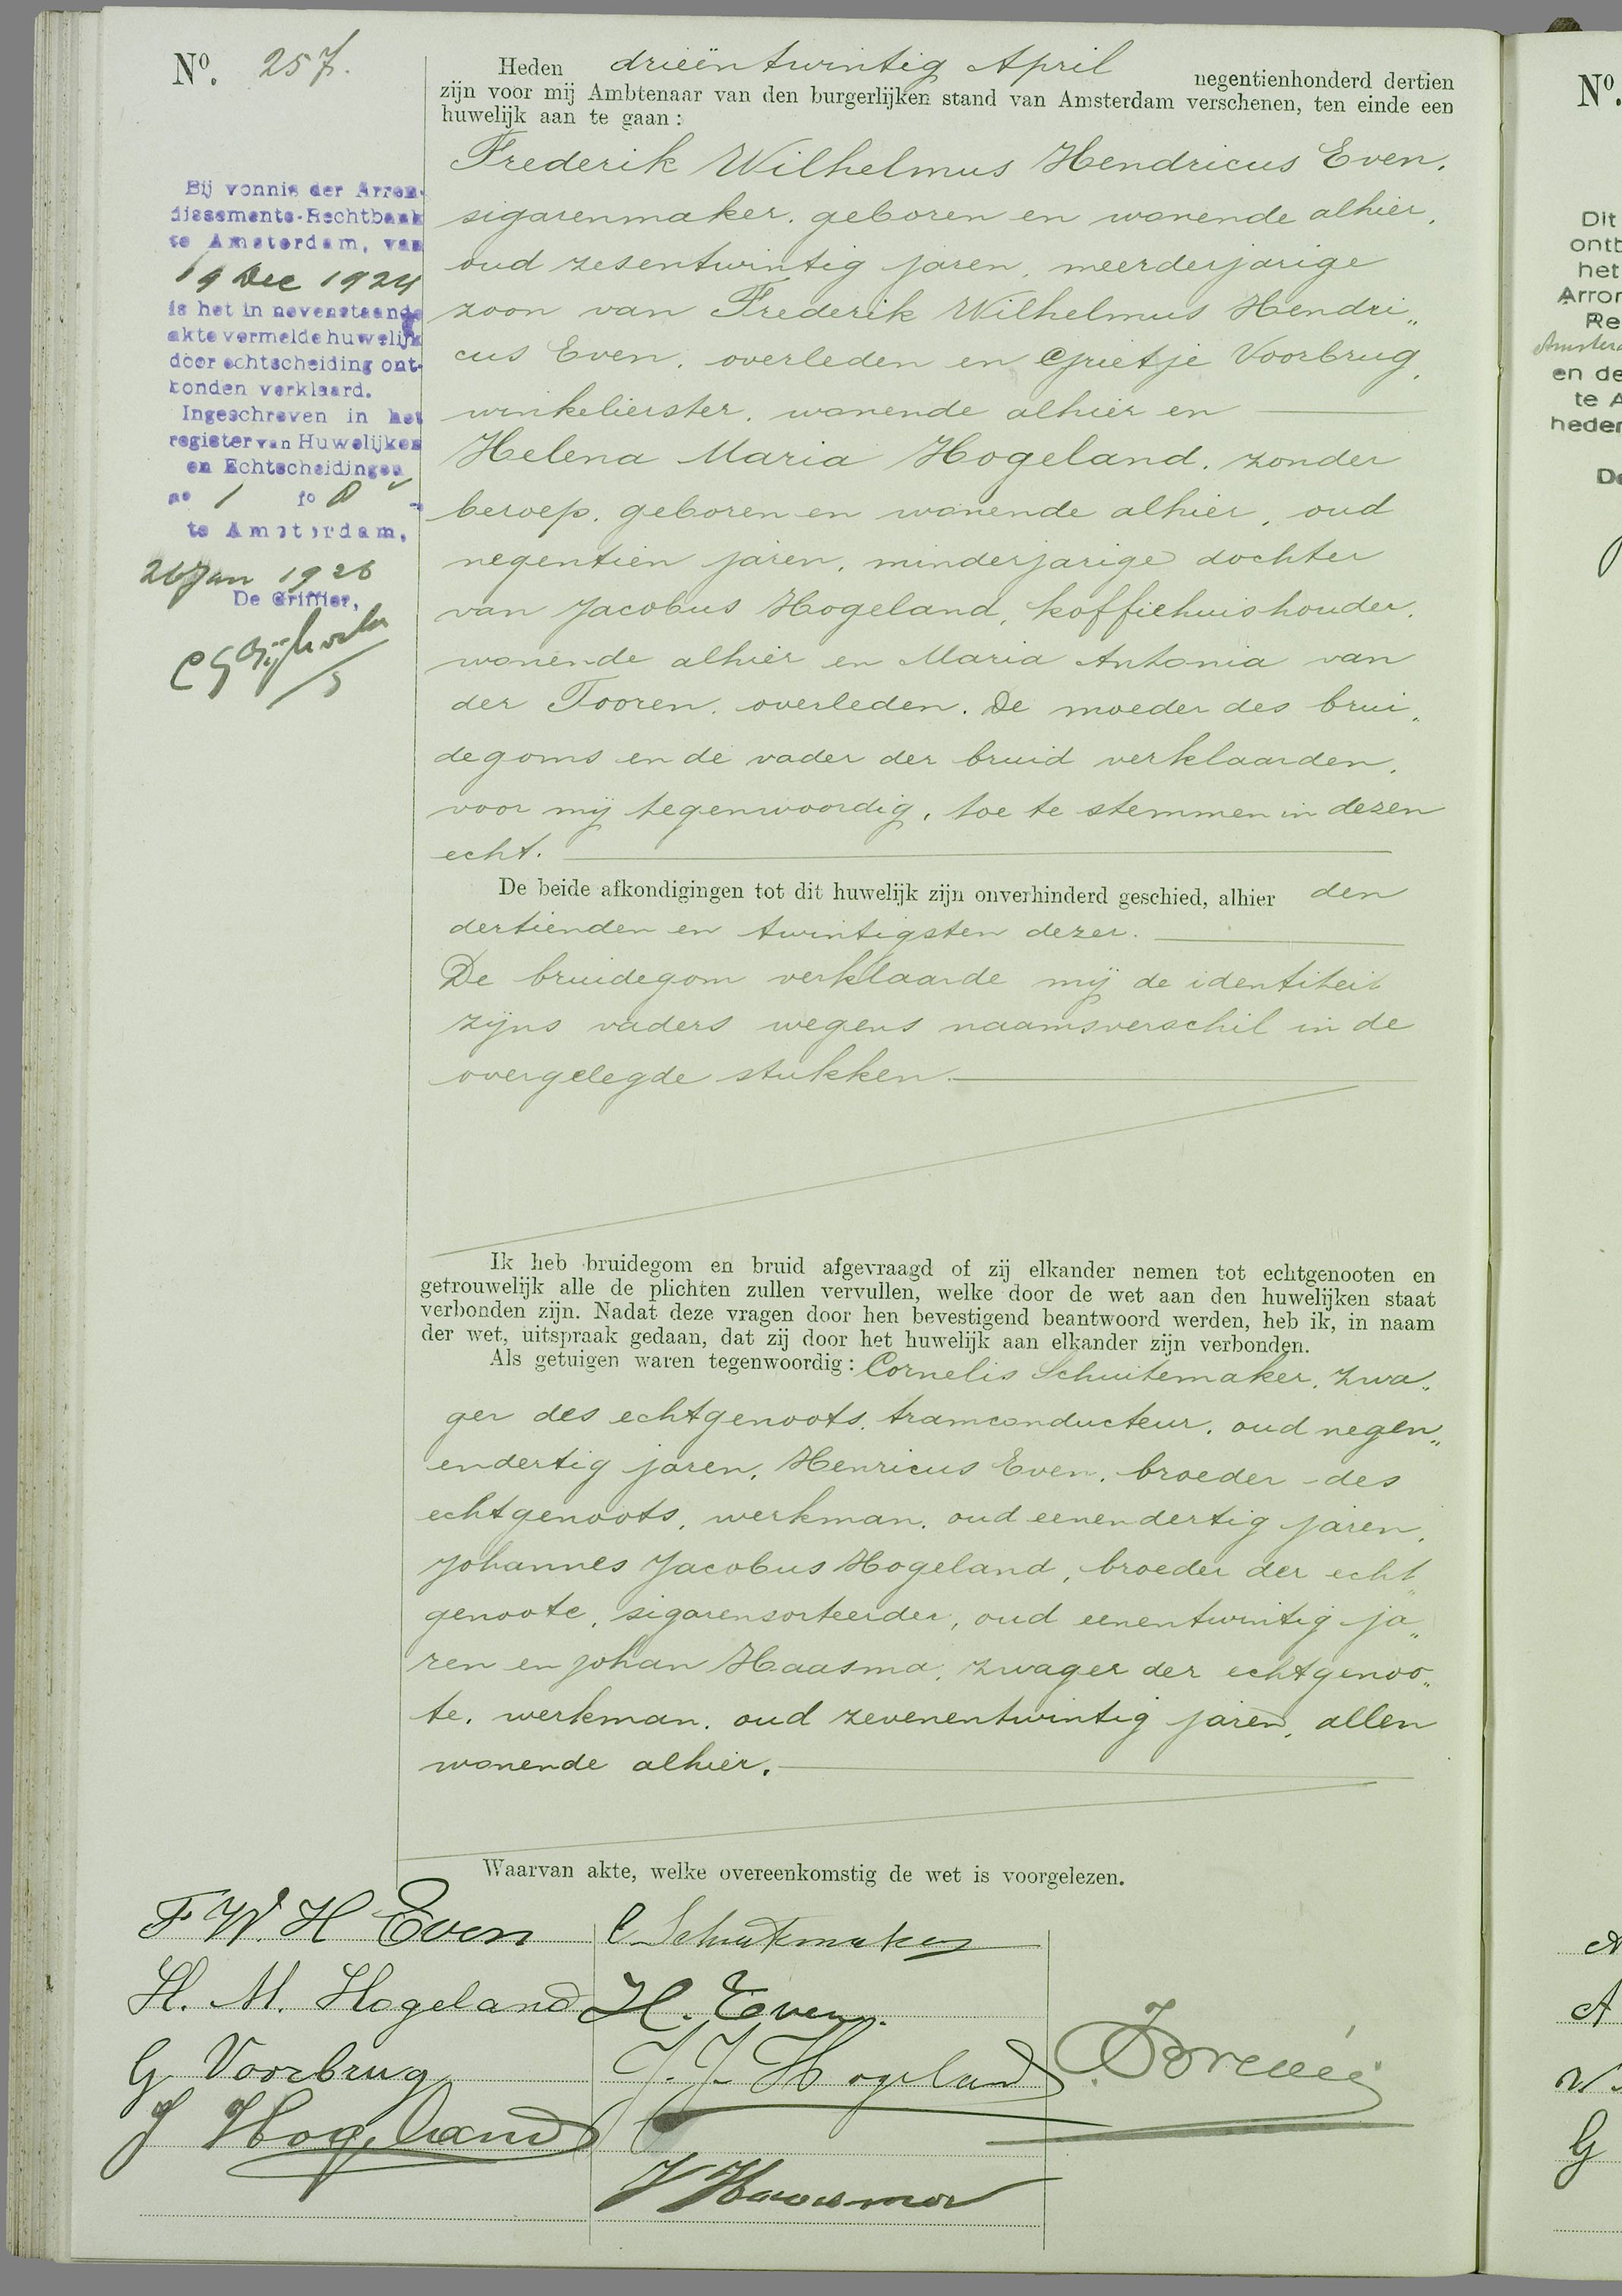 Nº. 257.
Heden drieëntwintig April negentienhonderd dertien
zijn voor mij Ambtenaar van den burgerlijken stand van Amsterdam verschenen, ten einde een
huwelijk aan te gaan:
Frederik Wilhelmus Hendricus Even,
sigarenmaker, geboren en wonende alhier,
oud zesentwintig jaren, meerderjarige
zoon van Frederik Wilhelmus Hendri„
cus Even, overleden en Grietje Voorbrug,
winkelierster, wonende alhier en
Helena Maria Hogeland, zonder
beroep, geboren en wonende alhier, oud
negentien jaren, minderjarige dochter
van Jacobus Hogeland, koffiehuishouder,
wonende alhier en Maria Antonia van
der Tooren, overleden. De moeder des brui„
degoms en de vader der bruid verklaarden,
voor mij tegenwoordig, toe te stemmen in dezen
echt.
De beide afkondigingen tot dit huwelijk zijn onverhinderd geschied, alhier den
dertienden en twintigsten dezer.
De bruidegom verklaarde mij de identiteit
zijns vaders wegens naamsverschil in de
overgelegde stukken.
Ik heb bruidegom en bruid afgevraagd of zij elkander nemen tot echtgenooten en
getrouwelijk alle de plichten zullen vervullen, welke door de wet aan den huwelijken staat
verbonden zijn. Nadat deze vragen door hen bevestigend beantwoord werden, heb ik, in naam
der wet, uitspraak gedaan, dat zij door het huwelijk aan elkander zijn verbonden.
Als getuigen waren tegenwoordig: Cornelis Schuitemaker, zwa„
ger des echtgenoots, tramconducteur, oud negen„
endertig jaren, Henricus Even, broeder des
echtgenoots, werkman, oud eenendertig jaren,
Johannes Jacobus Hogeland, broeder der echt„
genoote, sigarensorteerder, oud eenentwintig ja„
ren en Johan Haasma, zwager der echtgenoo„
te, werkman, oud zevenentwintig jaren, allen
wonende alhier.
Waarvan akte, welke overeenkomstig de wet is voorgelezen.
Bij vonnis der Arron-
dissements-Rechtbank
te Amsterdam, van
19 Dec 1924
is het in nevenstaande
akte vermelde huwelijk
door echtscheiding ont-
bonden verklaard.
Ingeschreven in het
register van Huwelijken
en Echtscheidingen
no 1 fo
te Amsterdam,
26 Jan 1926
De Griffier,
F. W. H Even
H. M. Hogeland
G Voorbrug
J Hogeland
C Schuitemaker
H. Even.
J. J. Hogeland
J Haasma
Nº.
Dit
ontb
het
Arron
Re
Amsterd
en de
te A
heden
De
A
A
W.
G